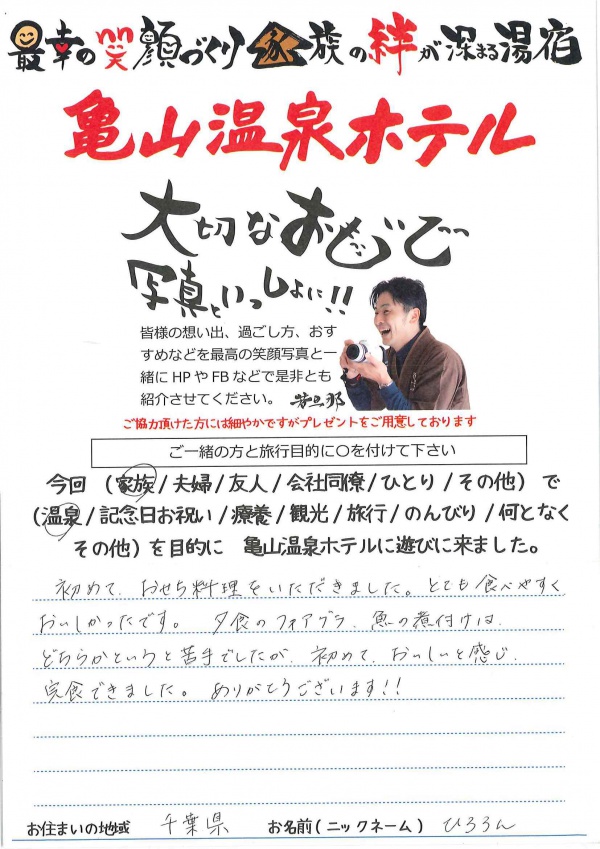 最幸の笑顔づくり 家族の絆が深まる湯宿
亀山温泉ホテル
大切なおもいで
写真といっしょに!!
皆様の想い出、過ごし方、おす
すめなどを最高の笑顔写真と一
緒にHPやFBなどで是非とも
紹介させてください。 若旦那
ご協力頂けた方には細やかですがプレゼントをご用意しております
ご一緒の方と旅行目的に〇を付けて下さい
今回 (家族/夫婦/友人/会社同僚/ひとり/その他) で
(温泉/記念日お祝い/療養/観光/旅行/のんびり/何となく
その他) を目的に 亀山温泉ホテルに遊びに来ました。
初めて、おせち料理をいただきました。とても食べやすく
おいしかったです。 夕食のフォアグラ、魚の煮付けは、
どちらかというと苦手でしたが、初めて、おいしいと感じ、
完食できました。 ありがとうございます!!
お住まいの地域 千葉県 お名前(ニックネーム) ひろろん